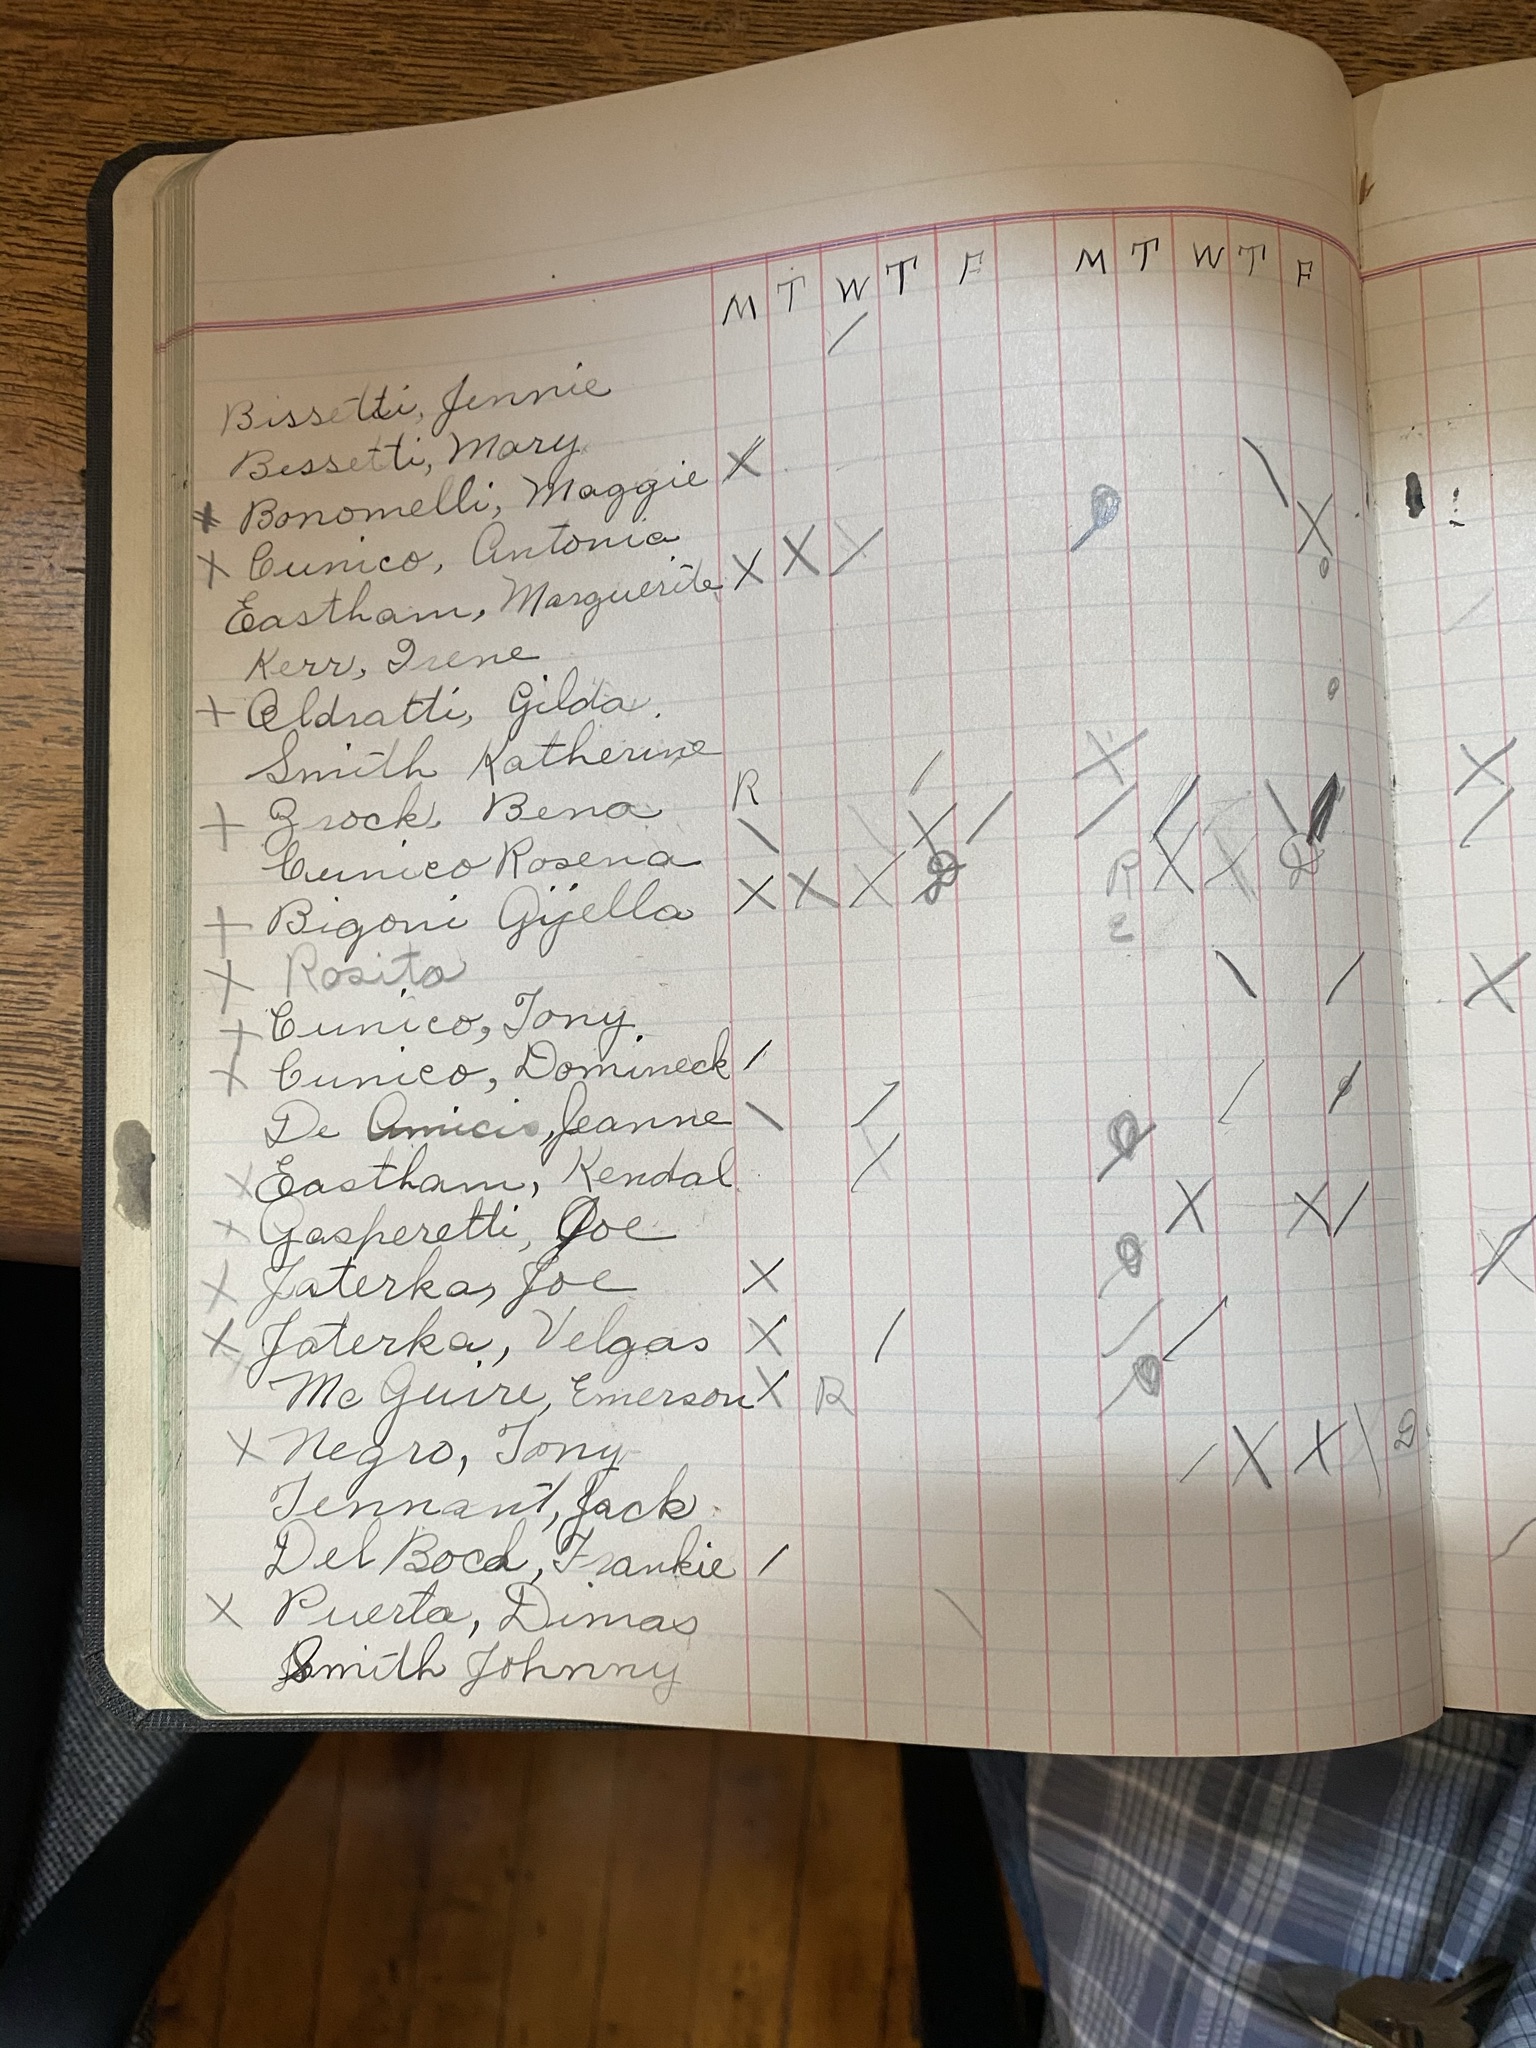 M T W T F M T W T F
/
Bissetti, Jennie
Bessetti, Mary
x Bonomelli, Maggie X \
x Cunico, Antonia X
Eastham, Marguerite X X X
Kerr, Irene
+ Aldratti, Gilda
Smith Katherine / X X
+ Brock, Bena R
Cunico Rosena \ X / / / \ /
+ Bigoni Gijella X X X D R X X D
x Rosita E
+ Cunico, Tony \ / X
x Cunico, Domineck /
De Amicis, Jeanne \ / / /
x Eastham, Kendal X
x Gasperetti, Joe X X /
x Jaterka, Joe X X
x Jaterka, Velgas X / / /
Mc Guire, Emerson X R
x Negro, Tony / X X \ D
Tennant, Jack
Del Boca, Frankie /
x Puerta, Dimas \
Smith Johnny